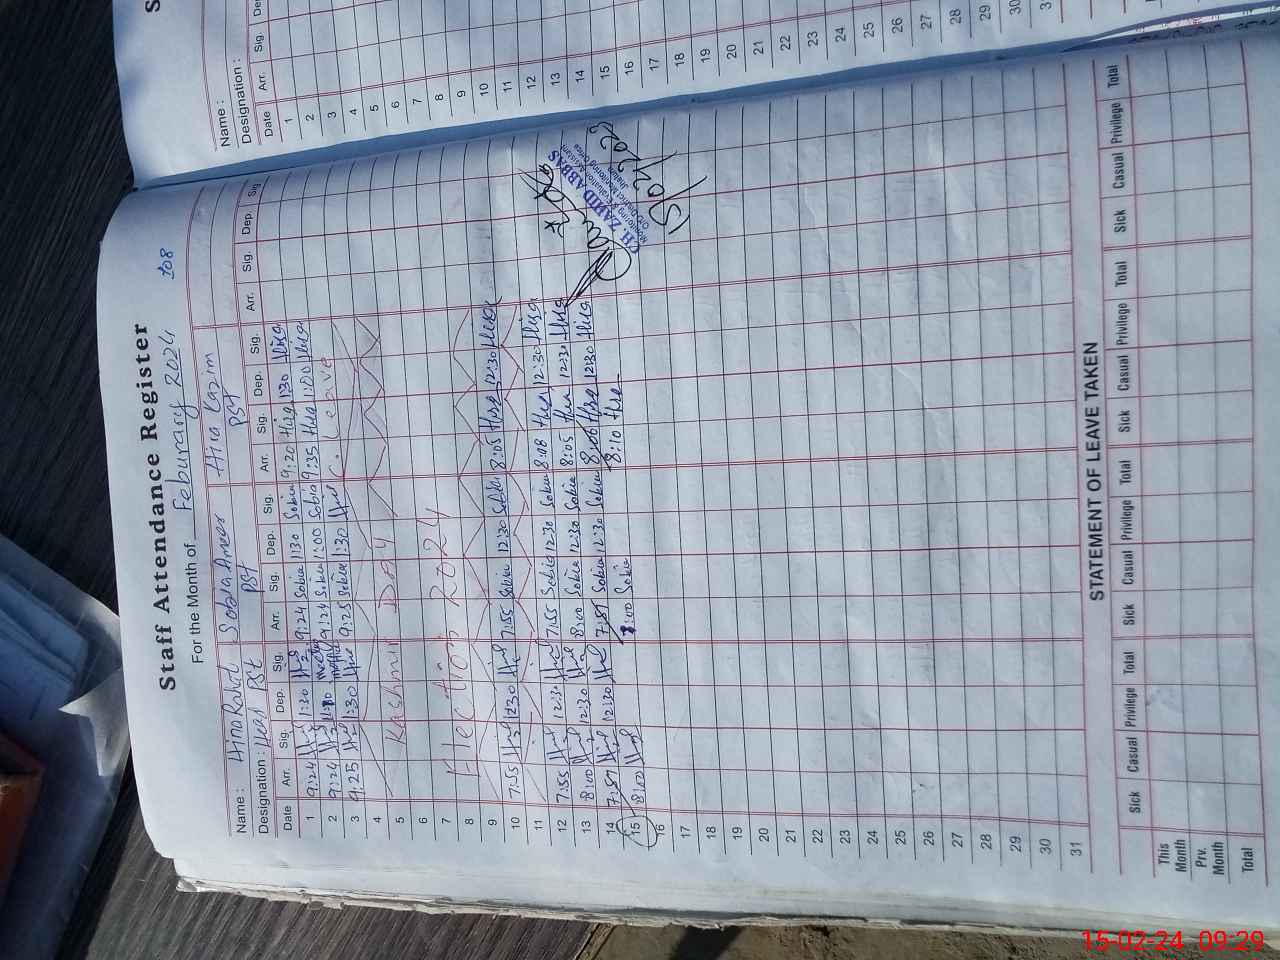 Staff Attendance Register
For the Month of Feburary 2024 108
Name : Hina Rahat Sobia Ameer Hira Kazim
Designation : Head PST PST PST
Date Arr. Sig. Dep. Sig. Arr. Sig. Dep. Sig. Arr. Sig. Dep. Sig. Arr. Sig. Dep. Sig
1 9:24 1:30 9:24 Sobia 1:30 Sobia 9:20 Hira 1:30 Hira
2 9:24 9:24 Sobia 1:00 Sobia 9:35 Hira 1:00 Hira
3 9:25 1:30 9:25 Sobia 1:30 Leave
4
5 Kashmir Day
6
7 Election 2024
8
9
10 7:55 12:30 7:55 Sobia 12:30 Sobia 8:05 Hira 12:30 Hira
11
12 7:55 12:30 7:55 Sobia 12:30 Sobia 8:08 Hira 12:30 Hira
13 8:00 12:30 8:00 Sobia 12:30 Sobia 8:05 Hira 12:30 Hira
14 7:57 12:30 7:57 Sobia 12:30 Sobia 8:06 Hira 12:30 Hira
15 8:00 8:00 Sobia 8:10 Hira
16
17
18
19
20
21
22
23
24
25
26
27
28
29
30
31
CH. ZAHID ABBAS
Monitoring & Evaluation Assistant
O/O District Monitoring Office
Jhelum
STATEMENT OF LEAVE TAKEN
Sick Casual Privilege Total Sick Casual Privilege Total Sick Casual Privilege Total Sick Casual Privilege Total
This Month
Prv. Month
Total
Name :
Designation :
Date Arr. Sig.
1
2
3
4
5
6
7
8
9
10
11
12
13
14
15
16
17
18
19
20
21
22
23
24
25
26
27
28
29
30
15-02-24 09:29